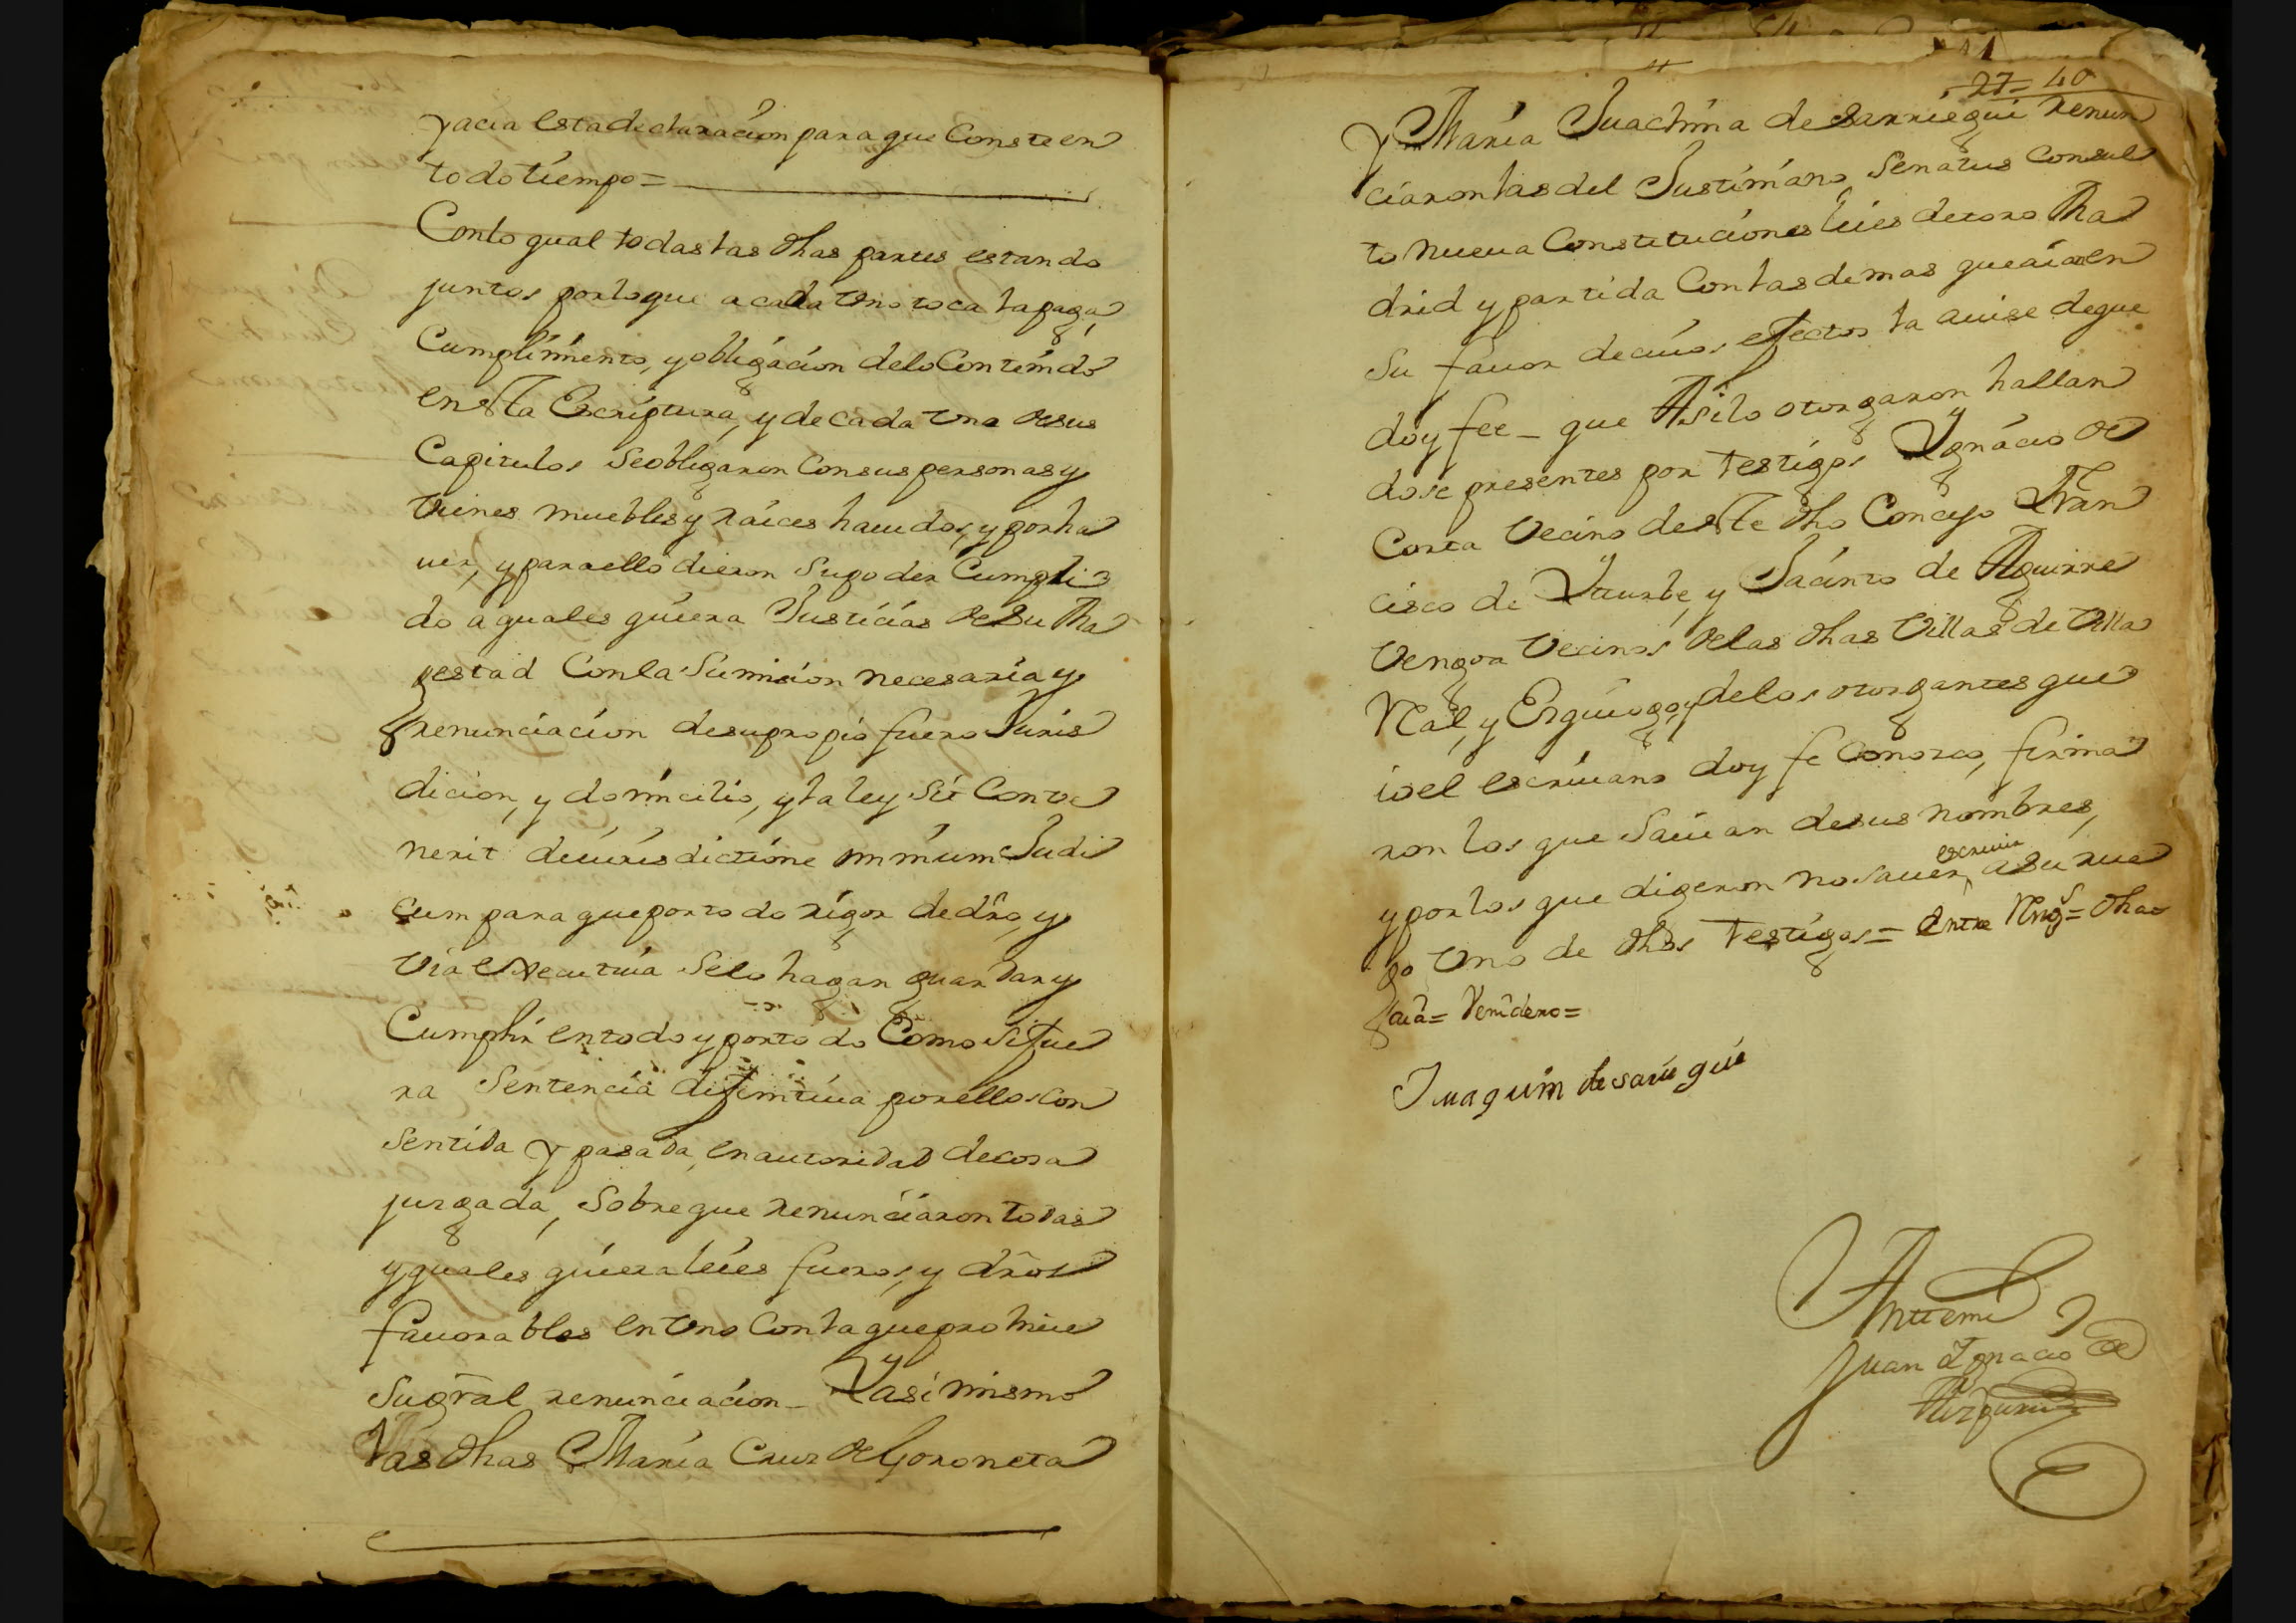 y acia esta declaracion para que Conste en
todo tiempo=
Con lo qual todas las dhas partes estando
juntos por lo que a cada Uno toca la paga,
Cumplimiento, y obligacion de lo Contenido
en esta Escriptura, y de cada Uno de sus
Capitulos Se obligaron Con sus personas y
Vienes muebles y raices hauidos, y por ha
uer, y para ello dieron Su poder Cumpli
do a quales quiera Justicias de Su Ma
gestad Con la Sumision necesaria y
renunciacion de su propio fuero Juris
dicion, y domicilio, y la ley Sit Conve
nerit de iurisdictione omnium Judi
cum para que por todo rigor de dro, y
Via executiua Se lo hagan guardar y
Cumplir en todo y por todo Como si fue
ra Sentencia difinitiua por ellos Con
Sentida y pasada en autoridad de cosa
juzgada, Sobre que renunciaron todas
y quales quiera leies fueros, y dros
fauorables en Uno Con la que prohiue
Su gral renunciacion - Y asi mismo
las dhas Maria Cruz de Goroneta
27= 40
y Maria Juachina de Sarriegui renun
ciaron las del Justiniano, Senatus Consul
to nueua Constituciones leies de toro Ma
drid y partida Con las demas que aia en
Su fauor de cuios efectos la auise de que
doy fee - que Asi lo otorgaron hallan
dose presentes por testigos Ygnacio de
Corta Vecino deste dho Concejo Fran
cisco de Yturbe, y Jacinto de Aguirre
Vengoa Vecinos de las dhas Villas de Villa
Real, y Ezquioga, y de los otorgantes que
io el escriuano doy fe Conozco, firma
ron los que Sauian de sus nombres,
y por los que digeron no sauer escriuir a su rue
go Uno de dhos testigos= Entre Rengs= dha=
aia= Venidero=
Juaquin de sariegui
Antemi
Juan Ygnacio de